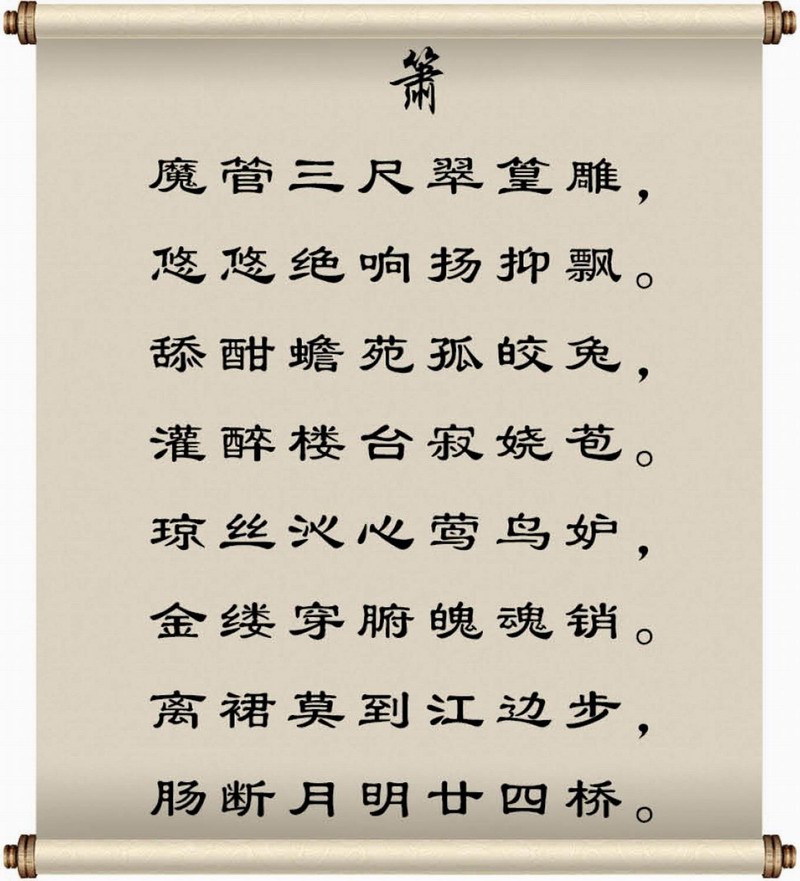 箫
魔管三尺翠篁雕，
悠悠绝响扬抑飘。
舔酣蟾苑孤皎兔，
灌醉楼台寂娆苞。
琼丝沁心莺鸟妒，
金缕穿腑魄魂销。
离裙莫到江边步，
肠断月明廿四桥。